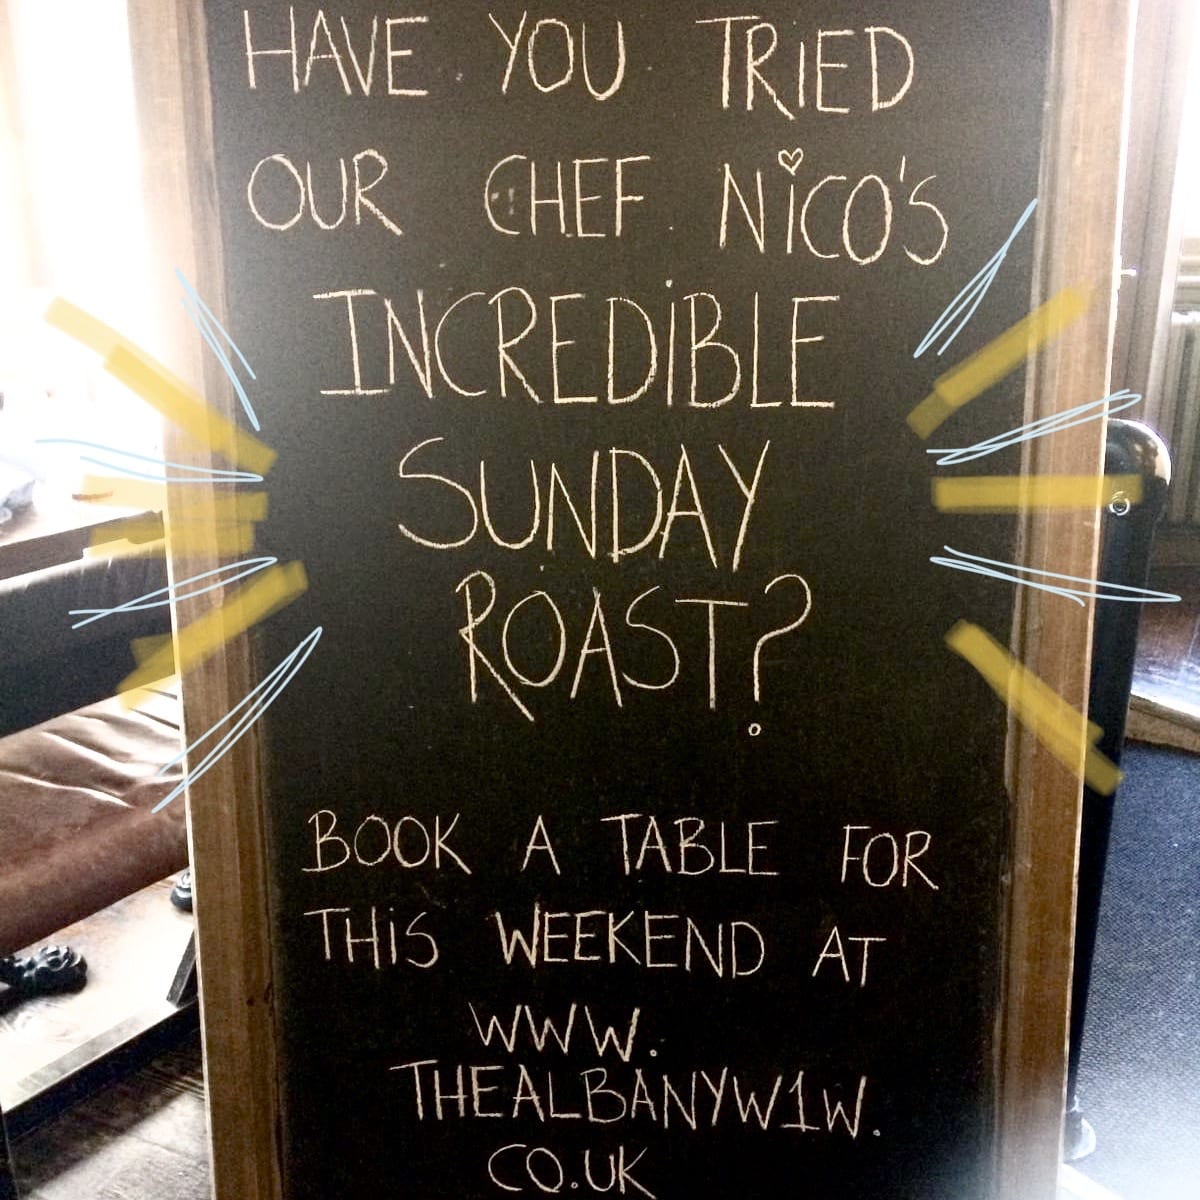 HAVE YOU TRIED
OUR CHEF NiCO'S
INCREDiBLE
SUNDAY
ROAST?
BOOK A TABLE FOR
THiS WEEKEND AT
WWW.
THEALBANYW1W.
CO.UK